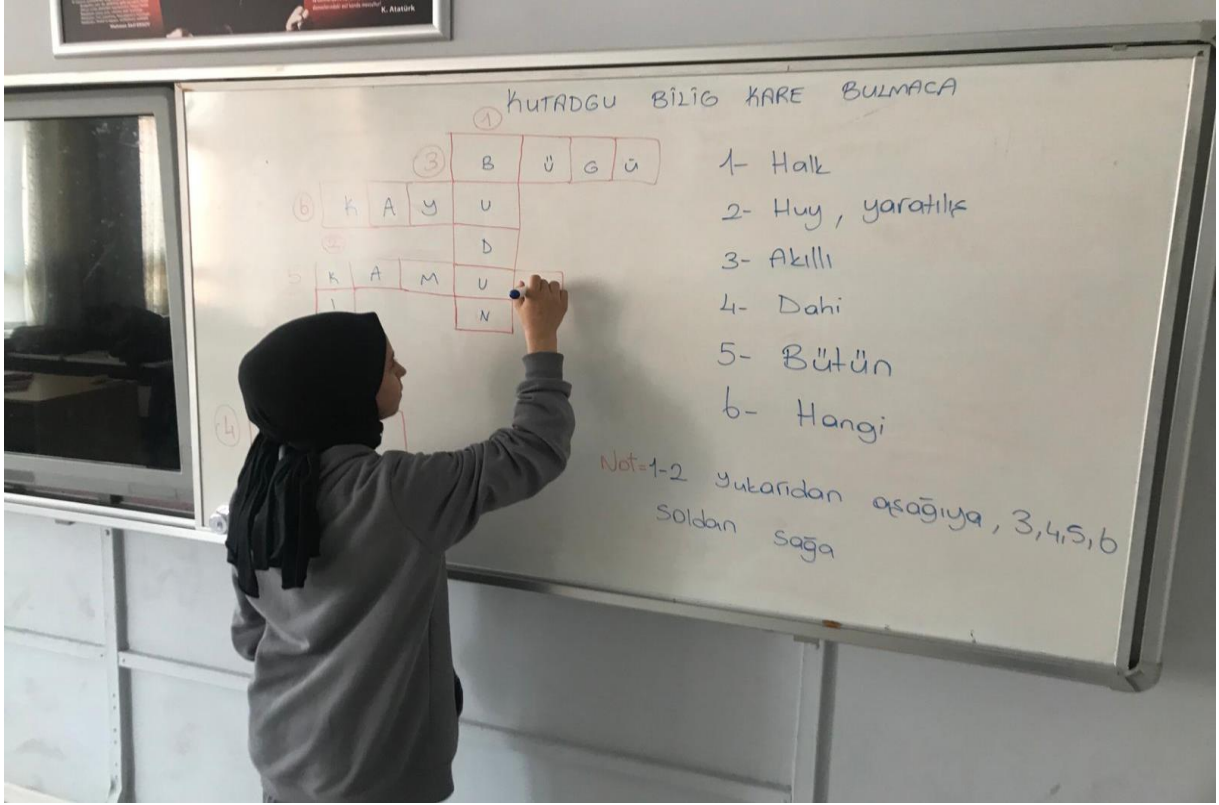 K. Atatürk
KUTADGU BİLİG KARE BULMACA
1
3 B Ü G Ü
6 K A Y U
D
2
5 K A M U
I N
4
1- Halk
2- Huy, yaratılış
3- Akıllı
4- Dahi
5- Bütün
6- Hangi
Not=1-2 yukarıdan aşağıya, 3,4,5,6
soldan sağa